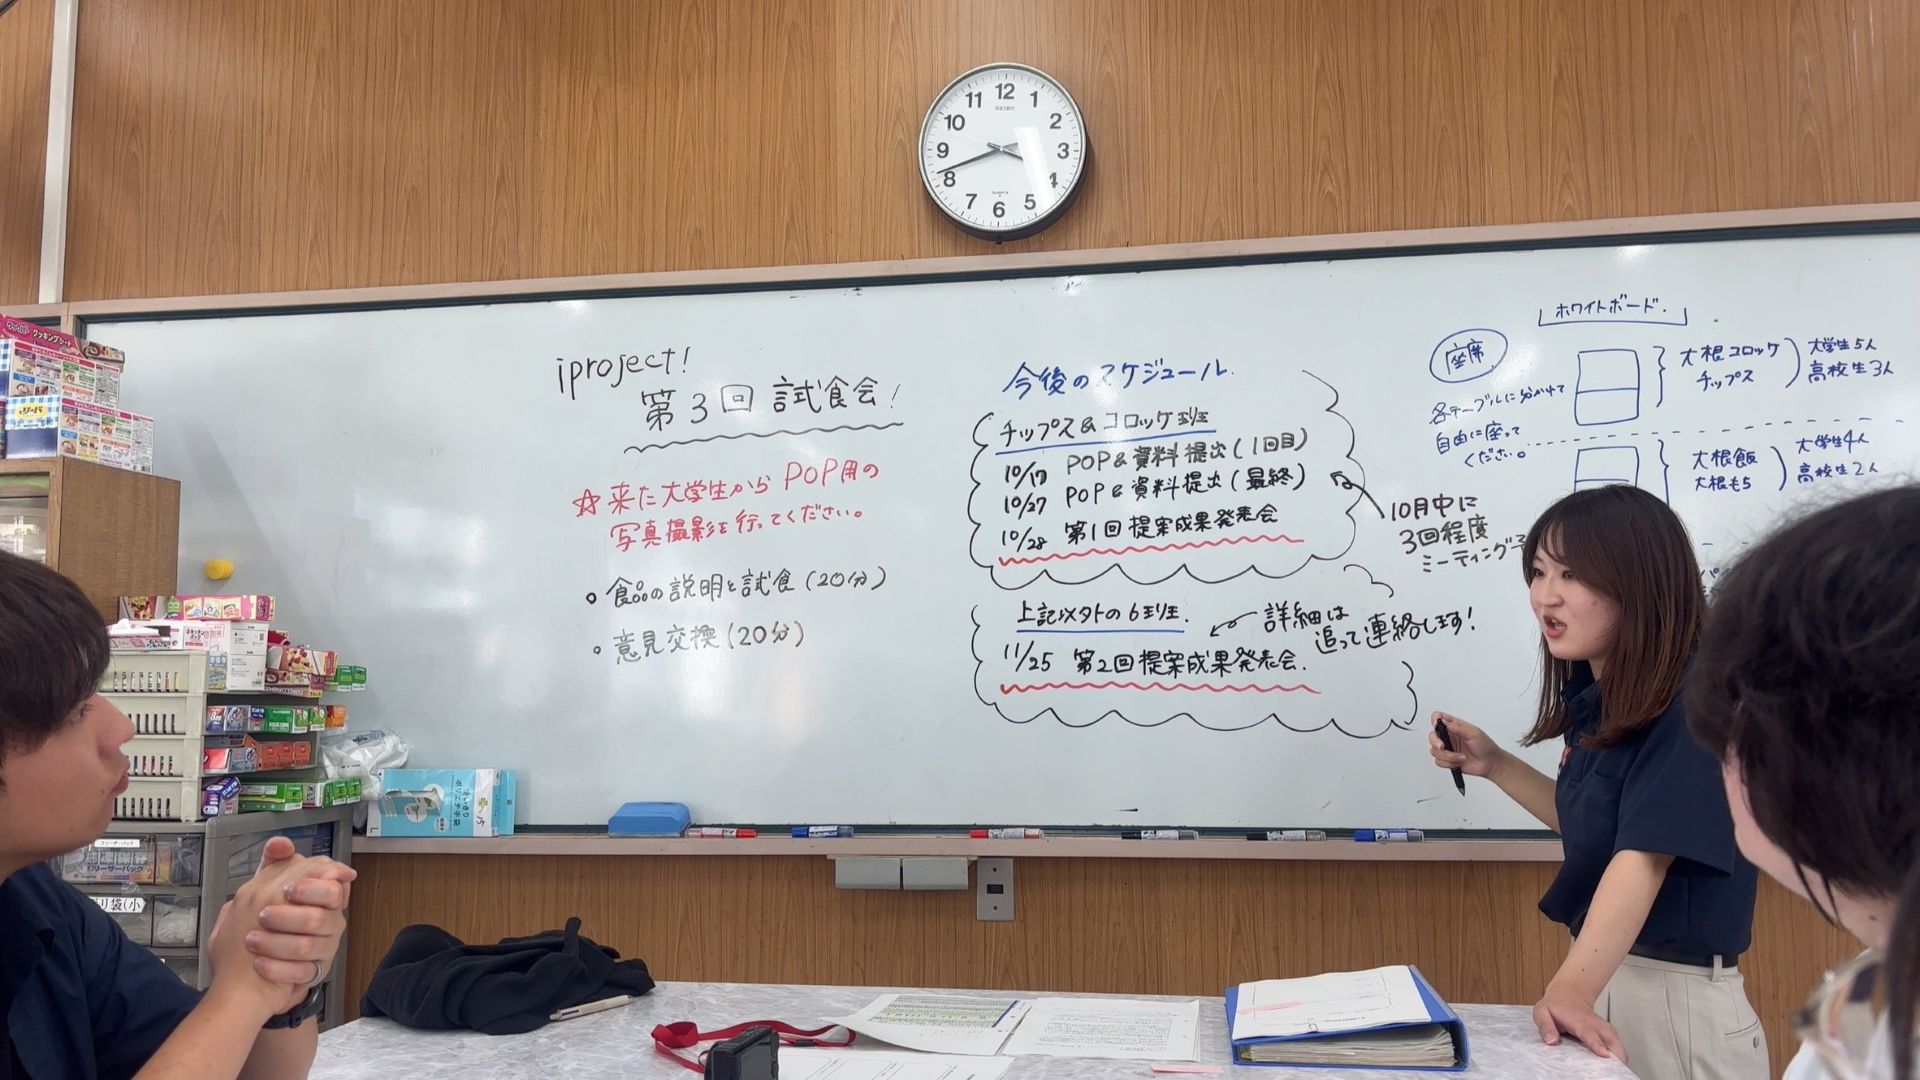 12
11
1
10
2
9
3
8
4
7
5
6
SEIKO
QUARTZ
iproject!
第3回 試食会!
☆来た大学生から POP用の
写真撮影を行ってください。
○食品の説明と試食(20分)
○意見交換(20分)
今後のスケジュール
チップス&コロッケ班
10/17 POP&資料提出(1回目)
10/27 POP&資料提出(最終)
10/28 第1回提案成果発表会
10月中に
3回程度
ミーティング
上記以外の6班
詳細は
追って連絡します!
11/25 第2回提案成果発表会.
ホワイトボード.
座席
各テーブルに分かれて
自由に座って
ください。
大根コロッケ
チップス
大学生5人
高校生3人
大根飯
大根もち
大学生4人
高校生2人
クッキングシート
リード
ポリエチ手袋
フリーザーパック
リ袋(小